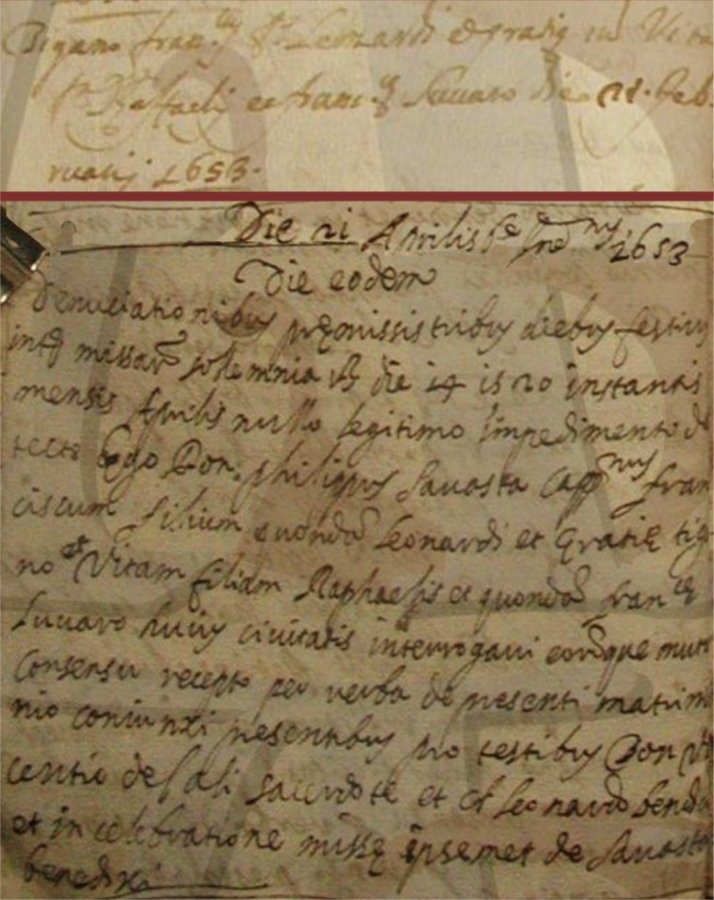 Tigano franc.us q. Leonardi et gratię cu Vita
q. Raffaeli et franc.ę Luuaro die 21. feb
ruarij 1653.
Die 21 Aprilis 1653
Die eodem
Denunciationibus pręmissis tribus diebus festiuis
missar solemnia die 14 is 20 instantis
mensis Aprilis nullo legitimo impedimento de
tecto Ego Don. philippus Sauasta Capp.nus fran
ciscum filium quondā Leonardi et Gratię tig
no et Vitam filiam Raphaelis et quondā fran.cę
Luuaro huius ciuitatis interrogaui eorūque mut
consensu recepto per uerba de presenti matrim
nio coniunxi presentibus pro testibus Don Vi
centio de sali sacerdote et Leonardo
et in celebratione missę ipsemet de Sauasta
benedixi